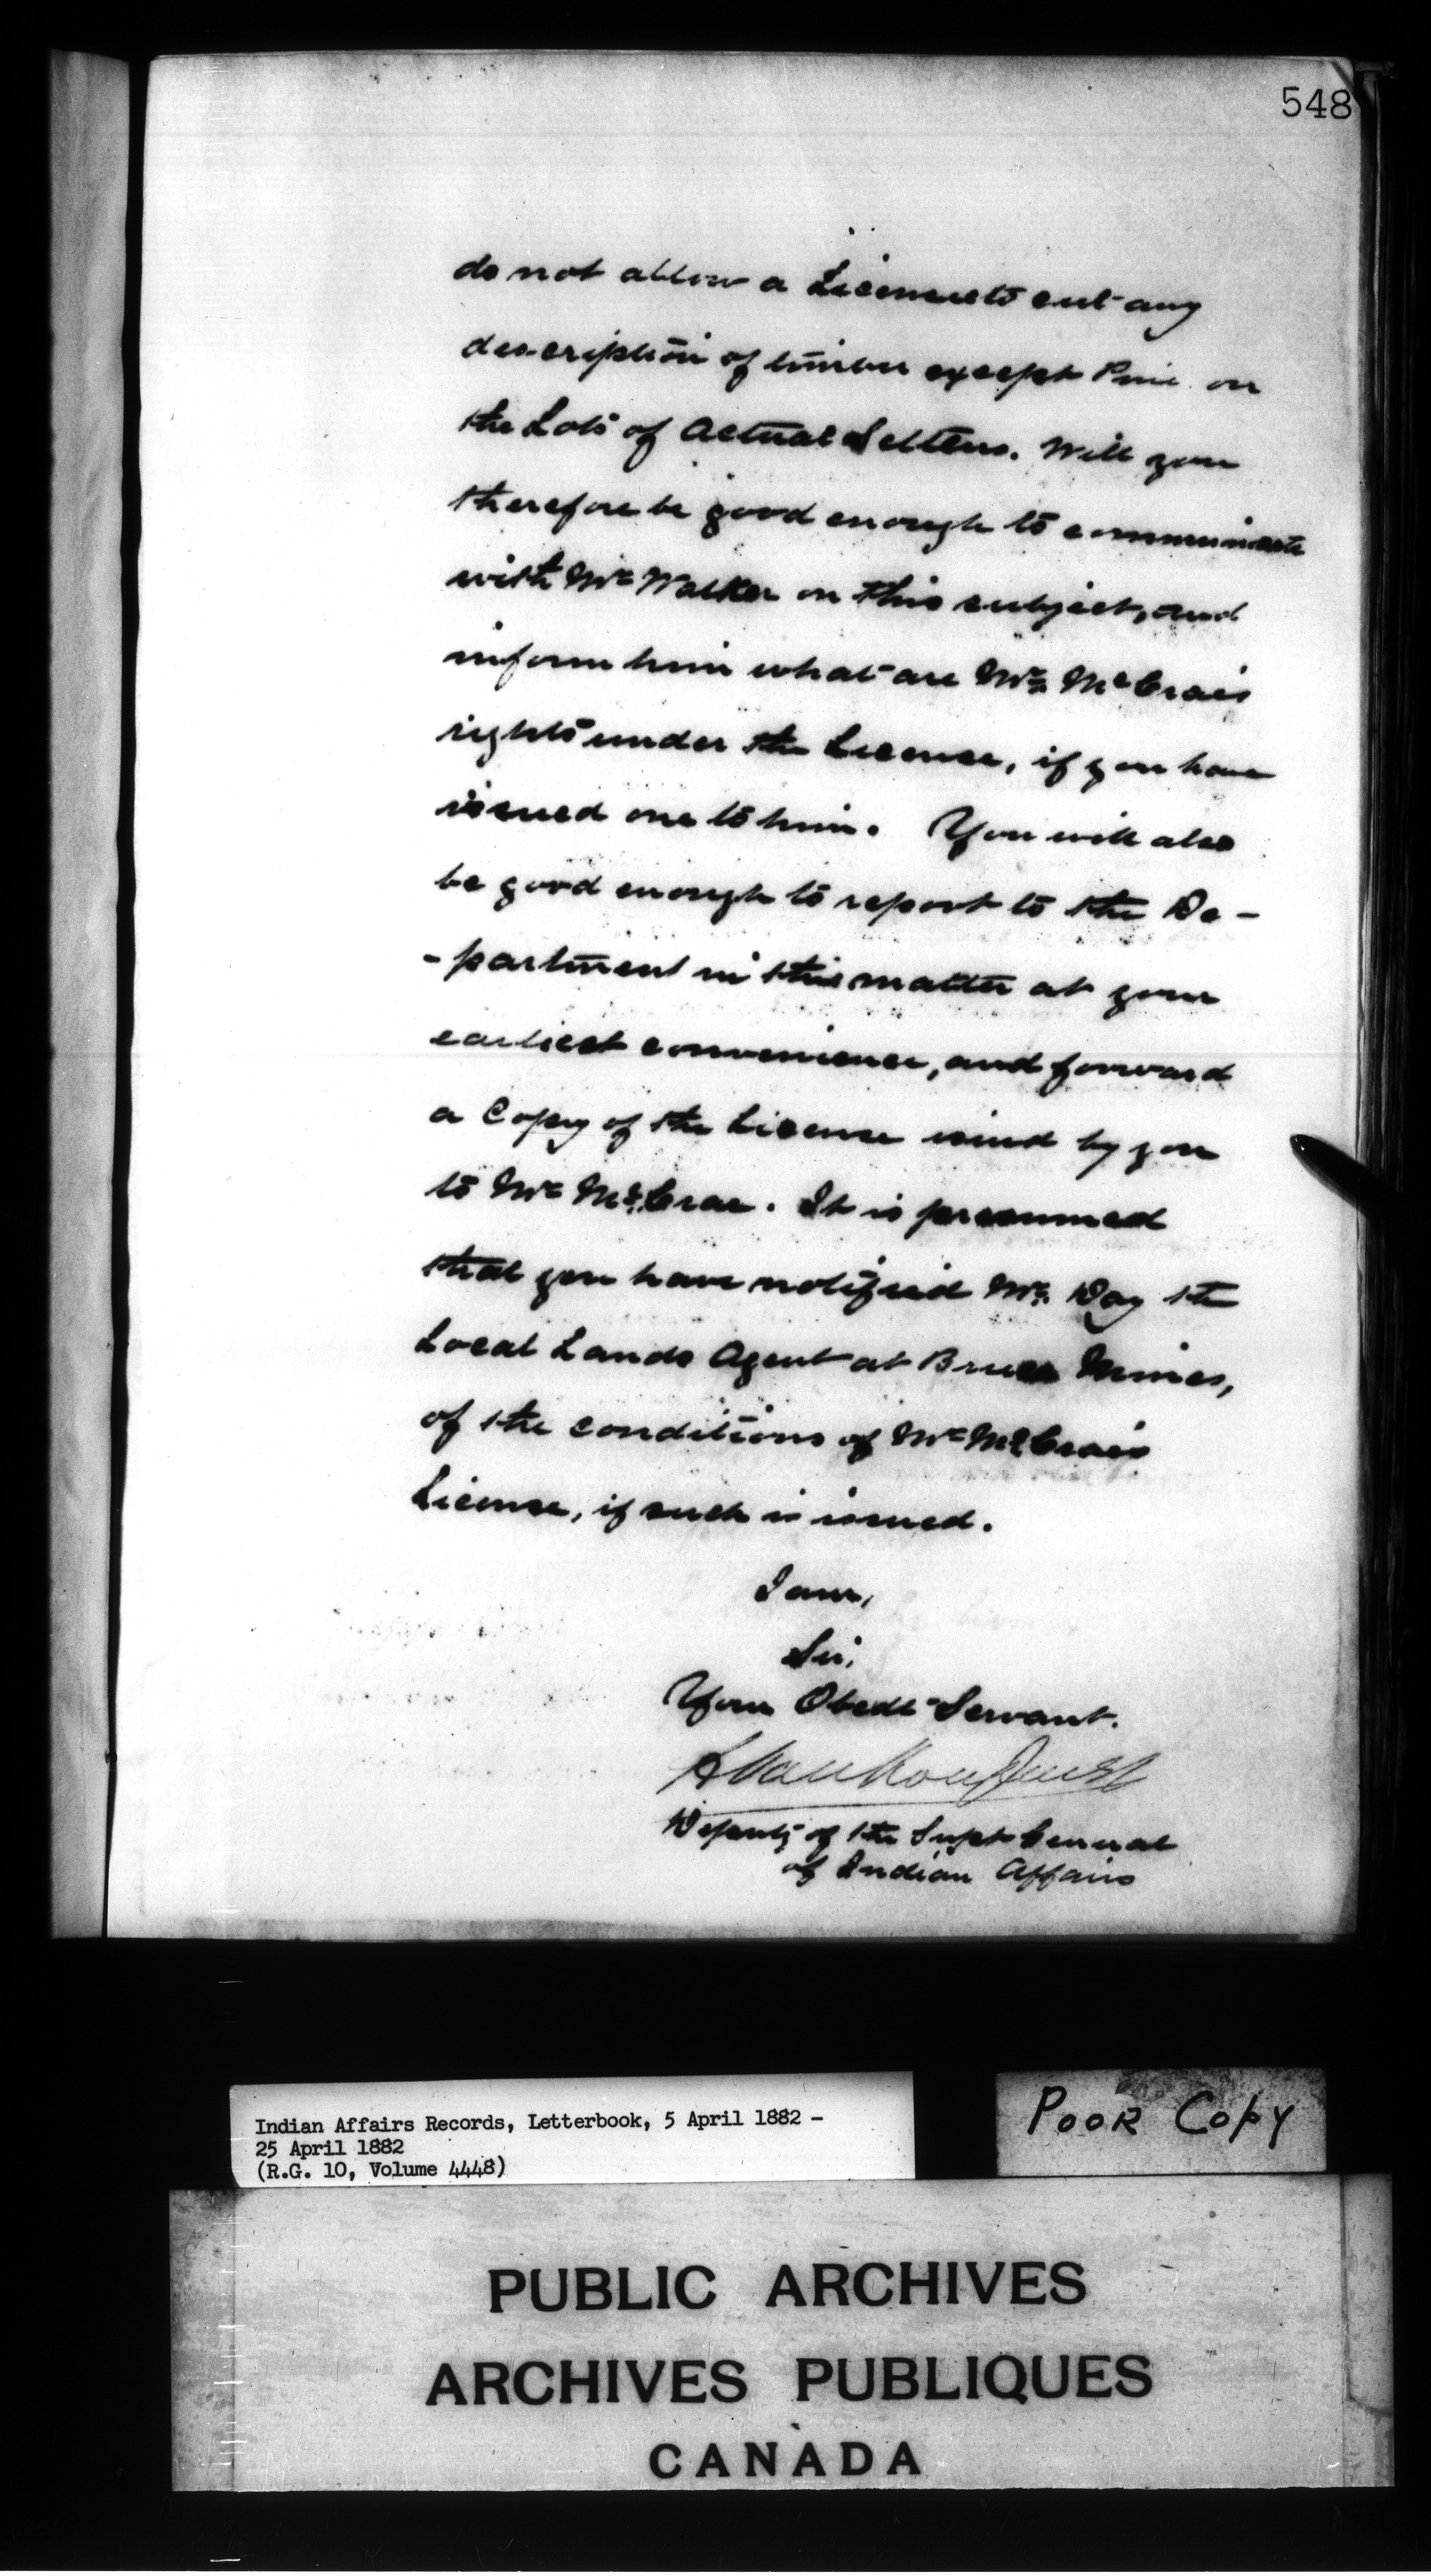 548
do not allow a Licensee to cut any
description of timber except Pine on
the Lots of Actual Settlers. Will you
therefore be good enough to communicate
with Mr Walker on this subject, and
inform him what are Mr. McCrae's
rights under the License, if you have
issued one to him. You will also
be good enough to report to the De-
-partment in this matter at your
earliest convenience, and forward
a Copy of the License issued by you
to Mr McCrae. It is presumed
that you have notified Mr. Day the
Local Lands Agent at Bruce Mines,
of the conditions of Mr McCrae's
License, if such is issued.
I am,
Sir,
Your Obedt Servant.
L VanKoughnet
Deputy of the Supt General
of Indian Affairs
Indian Affairs Records, Letterbook, 5 April 1882 -
25 April 1882
(R.G. 10, Volume 4448)
Poor Copy
PUBLIC ARCHIVES
ARCHIVES PUBLIQUES
CANADA